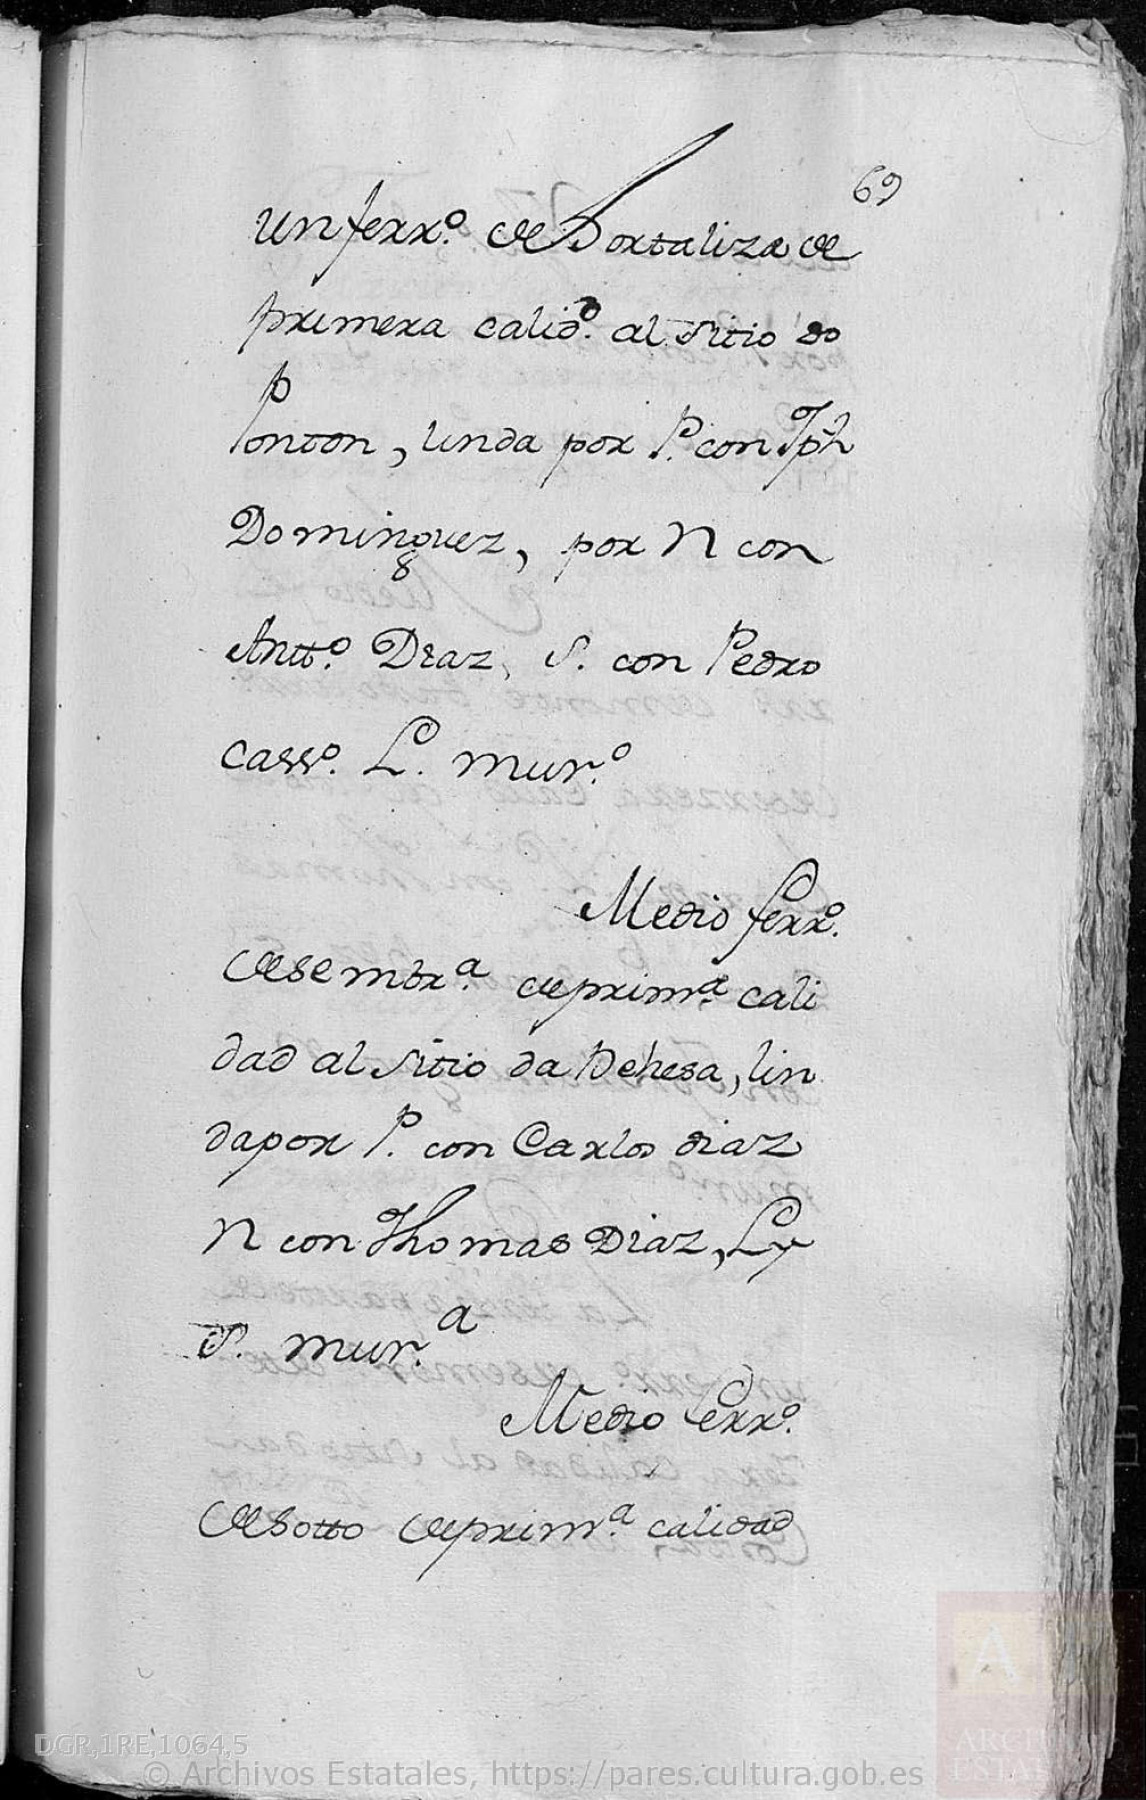 69
un ferr.º de Hortaliza de
primera calid.º al Sitio do
Ponton, linda por P. con Jph
Dominguez, por N con
Antt.º Diaz, S. con Pedro
Casss.º L. mur.º
Medio ferr.º
de sembr.ª de prim.ª cali
dad al sitio da Dehesa, lin
da por P. con Carlos diaz
N con Thomas Diaz, L y
S. mur.ª
Medio ferr.º
de sotto de prim.ª calidad
DGR,1RE,1064,5
© Archivos Estatales, https://pares.cultura.gob.es